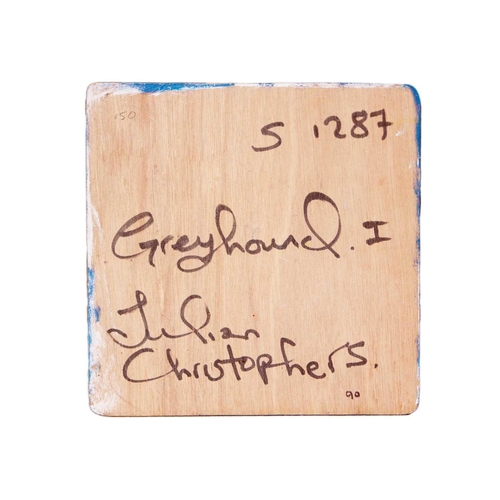 150
S 1287
Greyhound. I
Julian
Christophers.
90